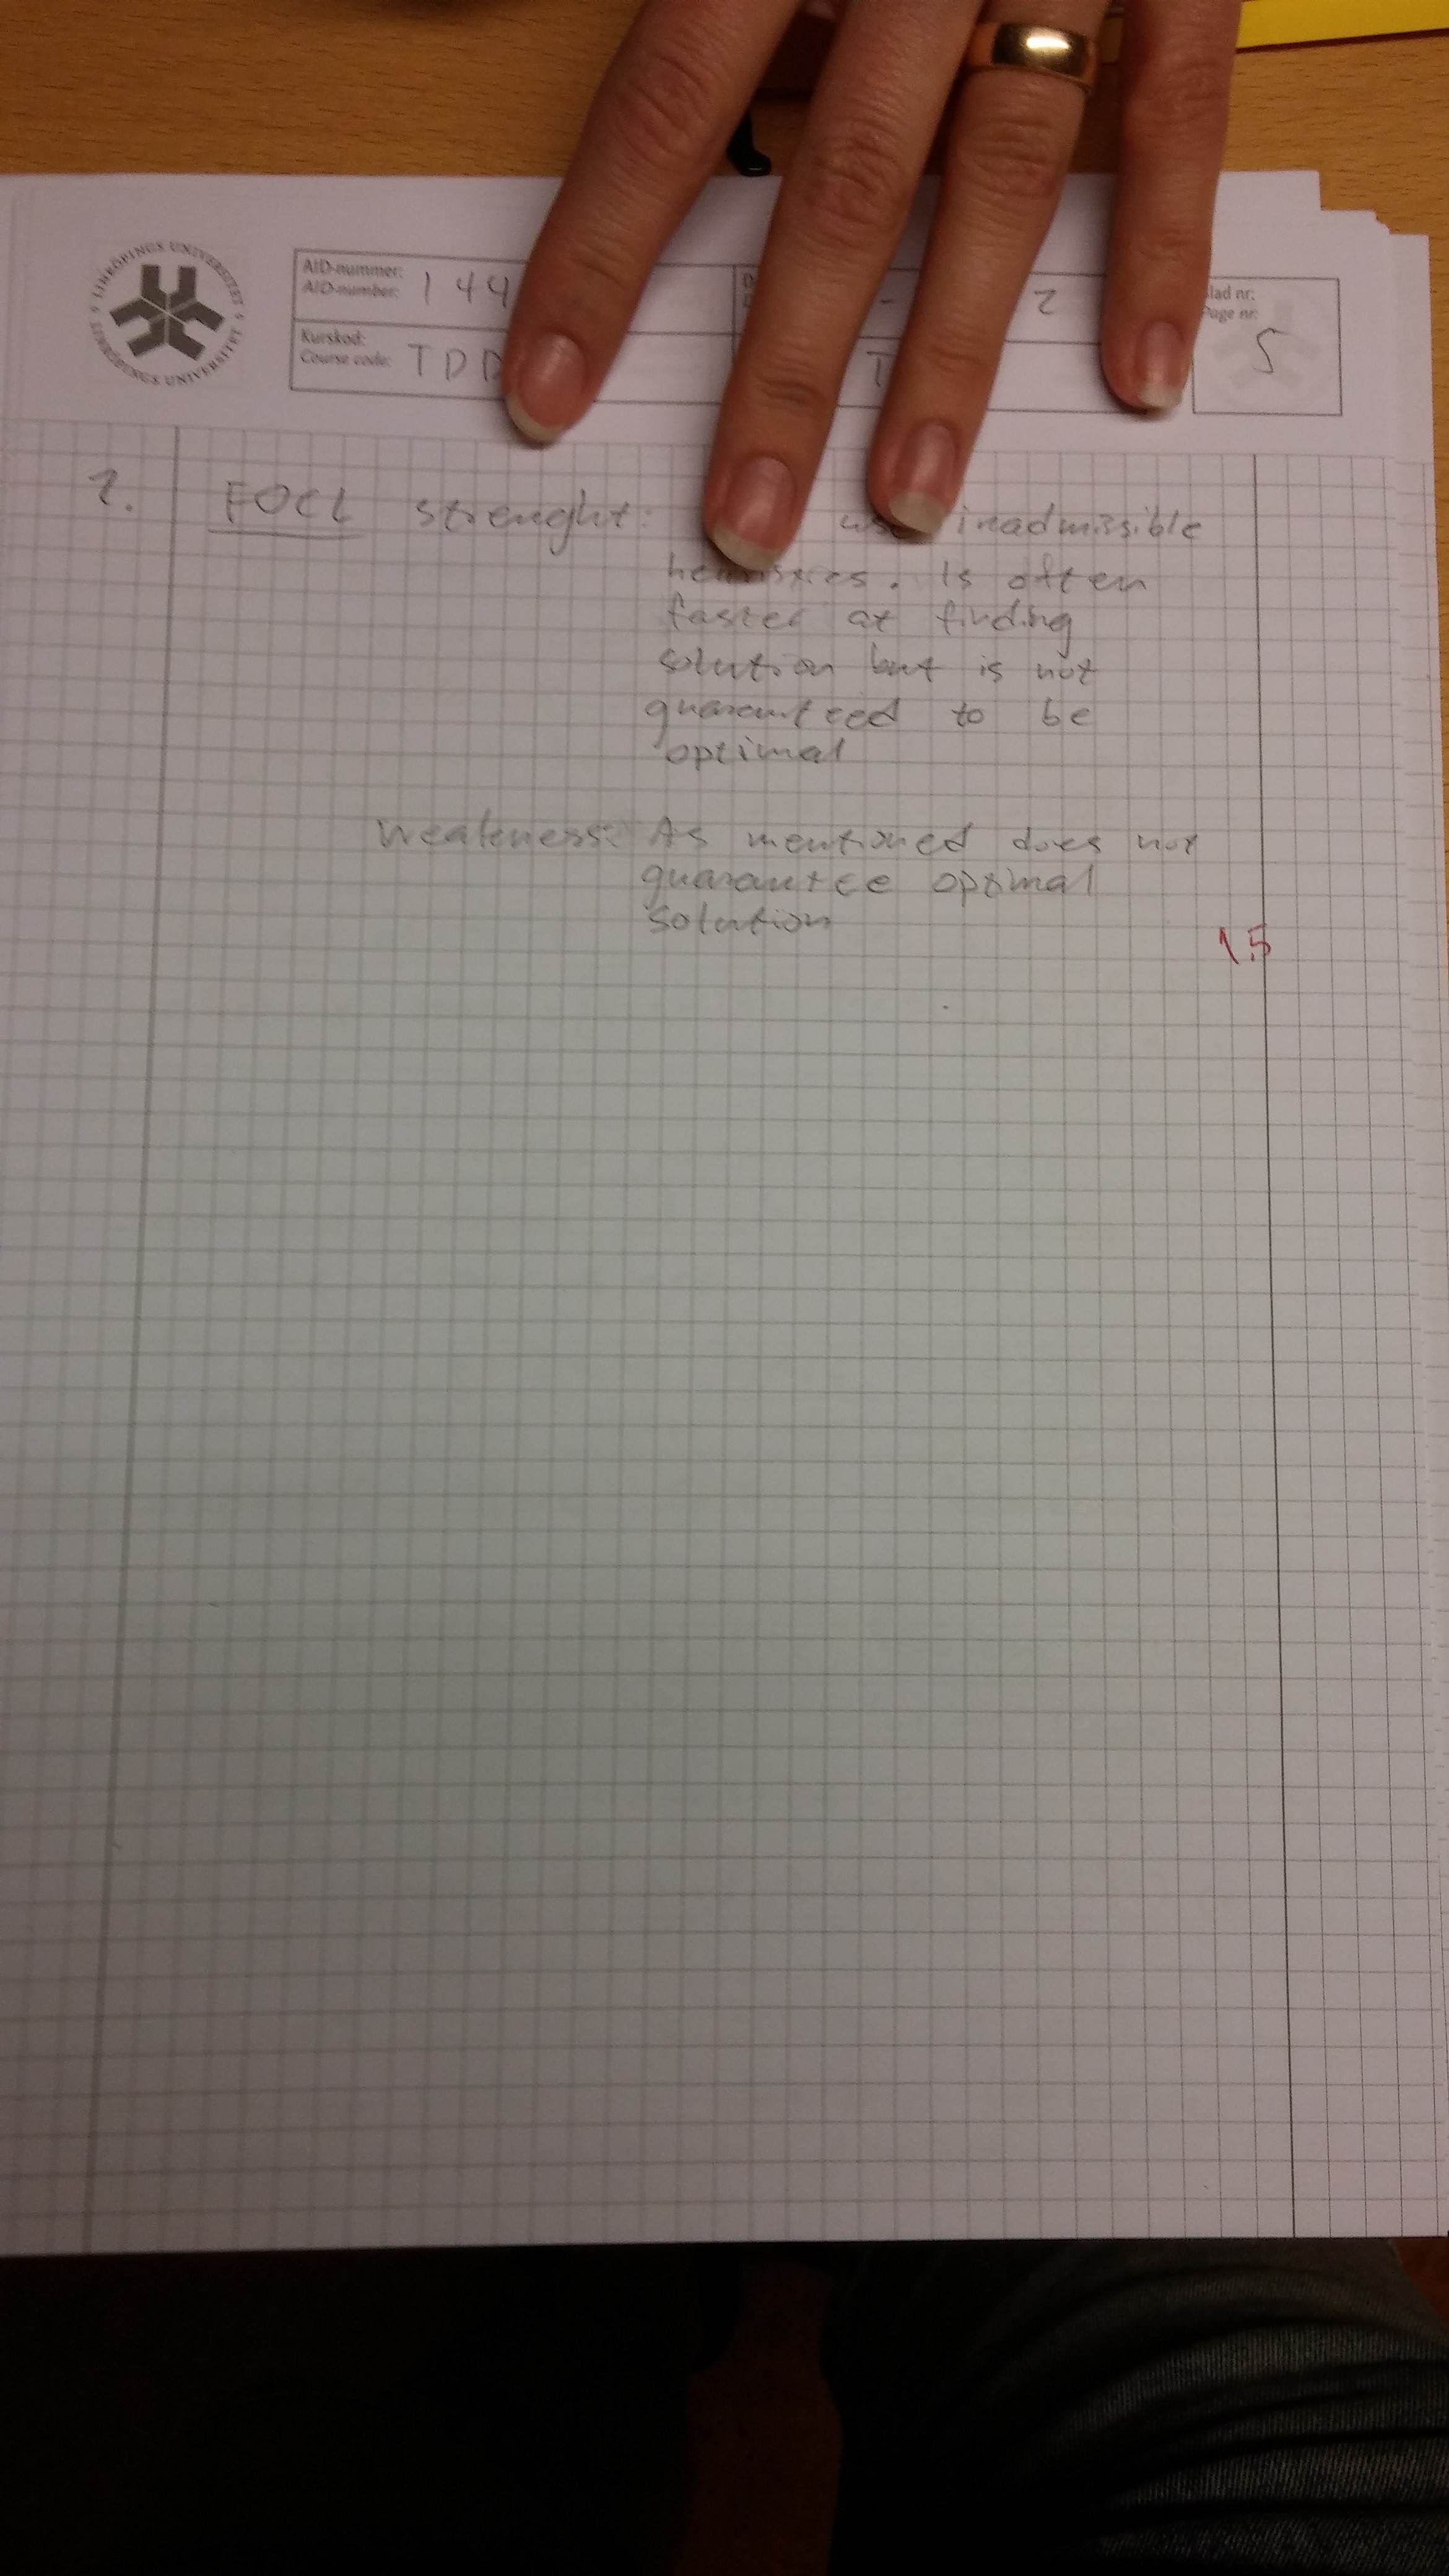 LINKÖPINGS UNIVERSITET
LINKÖPINGS UNIVERSITET
AID-nummer:
AID-number: 144
- 2
lad nr:
Page nr:
5
Kurskod:
Course code: TDD
T
2. FOCL strenght: use inadmissible
heuristics. Is often
faster at finding
solution but is not
guaranteed to be
optimal
Weakness: As mentioned does not
guarantee optimal
solution
1.5